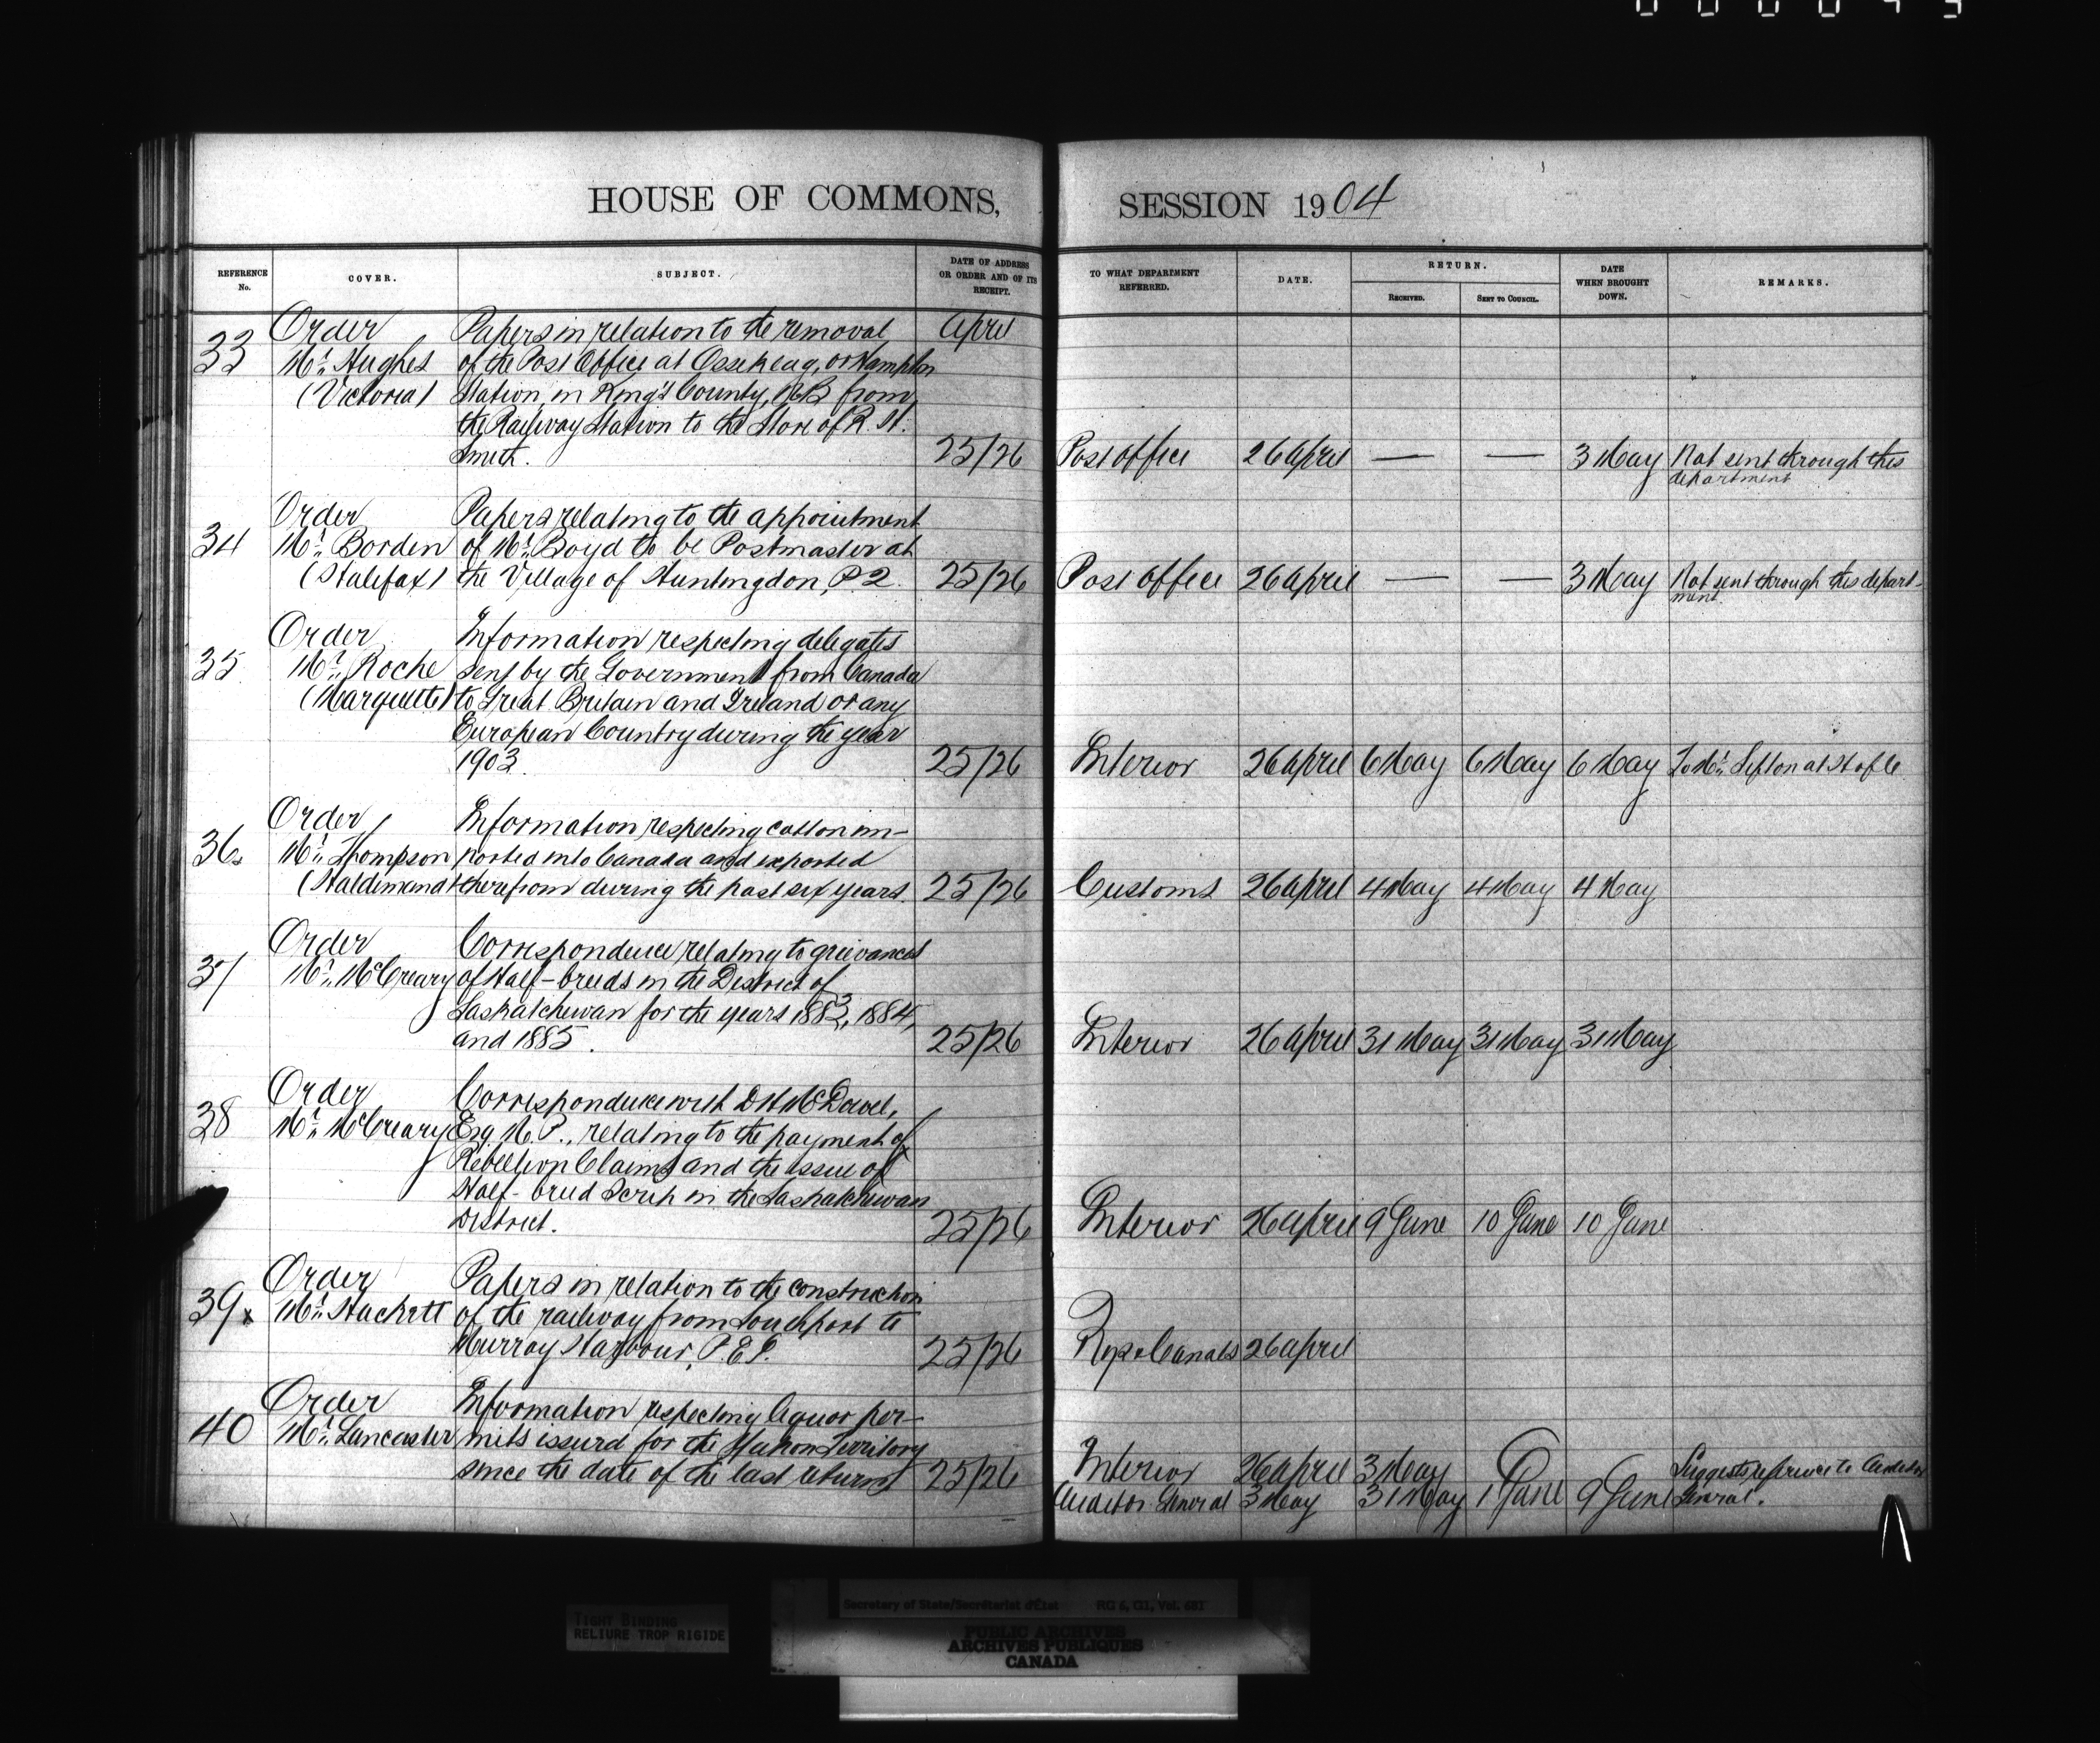 HOUSE OF COMMONS, SESSION 1904
REFERENCE No.
COVER.
SUBJECT.
DATE OF ADDRESS OR ORDER AND OF ITS RECEIPT.
TO WHAT DEPARTMENT REFERRED.
DATE.
RETURN.
RECEIVED.
SENT TO COUNCIL.
DATE WHEN BROUGHT DOWN.
REMARKS.
33
Order
Mr. Hughes
(Victoria)
Papers in relation to the removal
of the Post Office at Ossekeag, or Hampton
Station, in King's County, N.B. from
the Railway Station to the Store of R. H.
Smith.
April
25/26
Post office 26 April — — 3 May Not sent through this
department
34
Order
Mr. Borden
(Halifax)
Papers relating to the appointment
of Mr. Boyd to be Postmaster at
the Village of Huntingdon, P.Q.
25/26
Post office 26 April — — 3 May Not sent through this depart-
ment.
35
Order
Mr. Roche
(Marquette)
Information respecting delegates
sent by the Government from Canada
to Great Britain and Ireland or any
European Country during the year
1903.
25/26
Interior 26 April 6 May 6 May 6 May To Mr. Sifton at H of C
36
Order
Mr. Thompson
(Haldimand)
Information respecting cotton im-
ported into Canada and exported
therefrom during the past six years.
25/26
Customs 26 April 4 May 4 May 4 May
37
Order
Mr. McCreary
Correspondence relating to grievances
of Half-breeds in the District of
Saskatchewan for the years 1883, 1884,
and 1885.
25/26
Interior 26 April 31 May 31 May 31 May
38
Order
Mr. McCreary
Correspondence with D H McDowel,
Esq. M.P., relating to the payment of
Rebellion Claims and the issue of
Half-breed Scrip in the Saskatchewan
District.
25/26
Interior 26 April 9 June 10 June 10 June
39x
Order
Mr. Hackett
Papers in relation to the construction
of the railway from Southport to
Murray Harbour, P.E.I.
25/26
Rys & Canals 26 April
40
Order
Mr. Lancaster
Information respecting liquor per-
mits issued for the Yukon Territory
since the date of the last return
25/26
Interior 26 April 3 May
Auditor General 3 May 31 May 1 June 9 June
Suggests reference to Auditor
General.
TIGHT BINDING
RELIURE TROP RIGIDE
Secretary of State/Secrétariat d'État RG 6, G1, Vol. 681
PUBLIC ARCHIVES
ARCHIVES PUBLIQUES
CANADA